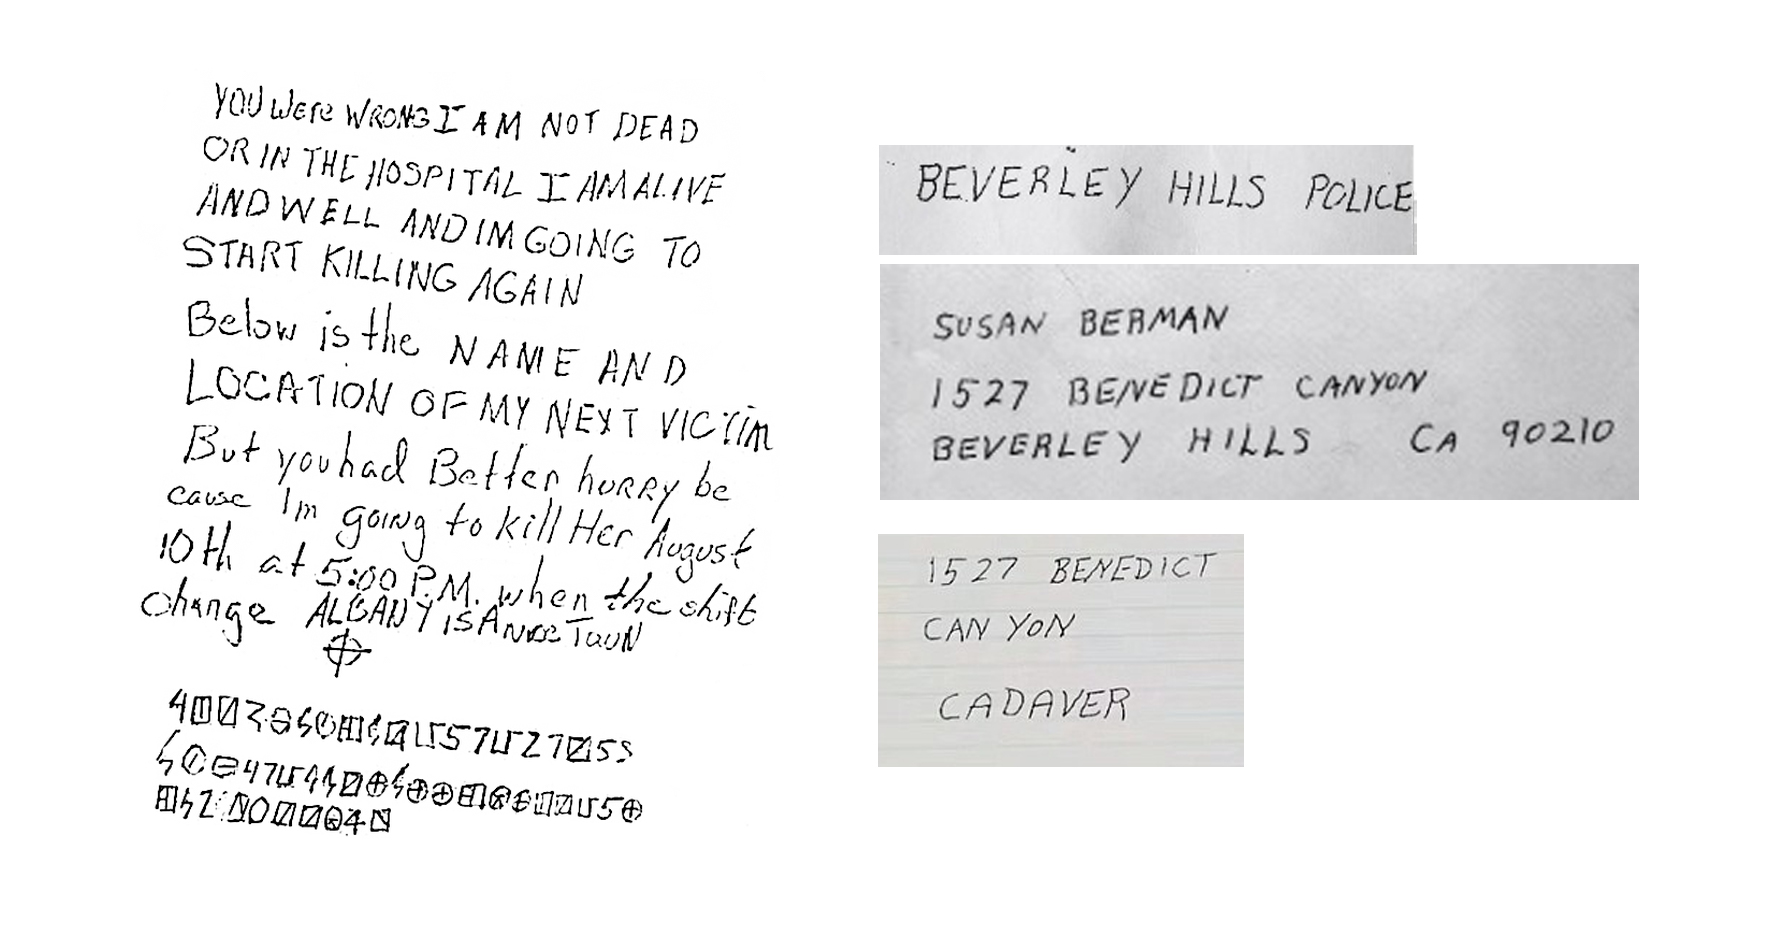 YOU Were WRONG I AM NOT DEAD
OR IN THE HOSPITAL I AM ALIVE
AND WELL AND IM GOING TO
START KILLING AGAIN
Below is the NAME AND
LOCATION OF MY NEXT VICTIM
But you had Better hurry be
cause Im going to kill Her August
10th at 5:00 P.M. when the shift
change ALBANY IS A Nice Town
BEVERLEY HILLS POLICE
SUSAN BERMAN
1527 BENEDICT CANYON
BEVERLEY HILLS CA 90210
1527 BENEDICT
CAN YON
CADAVER